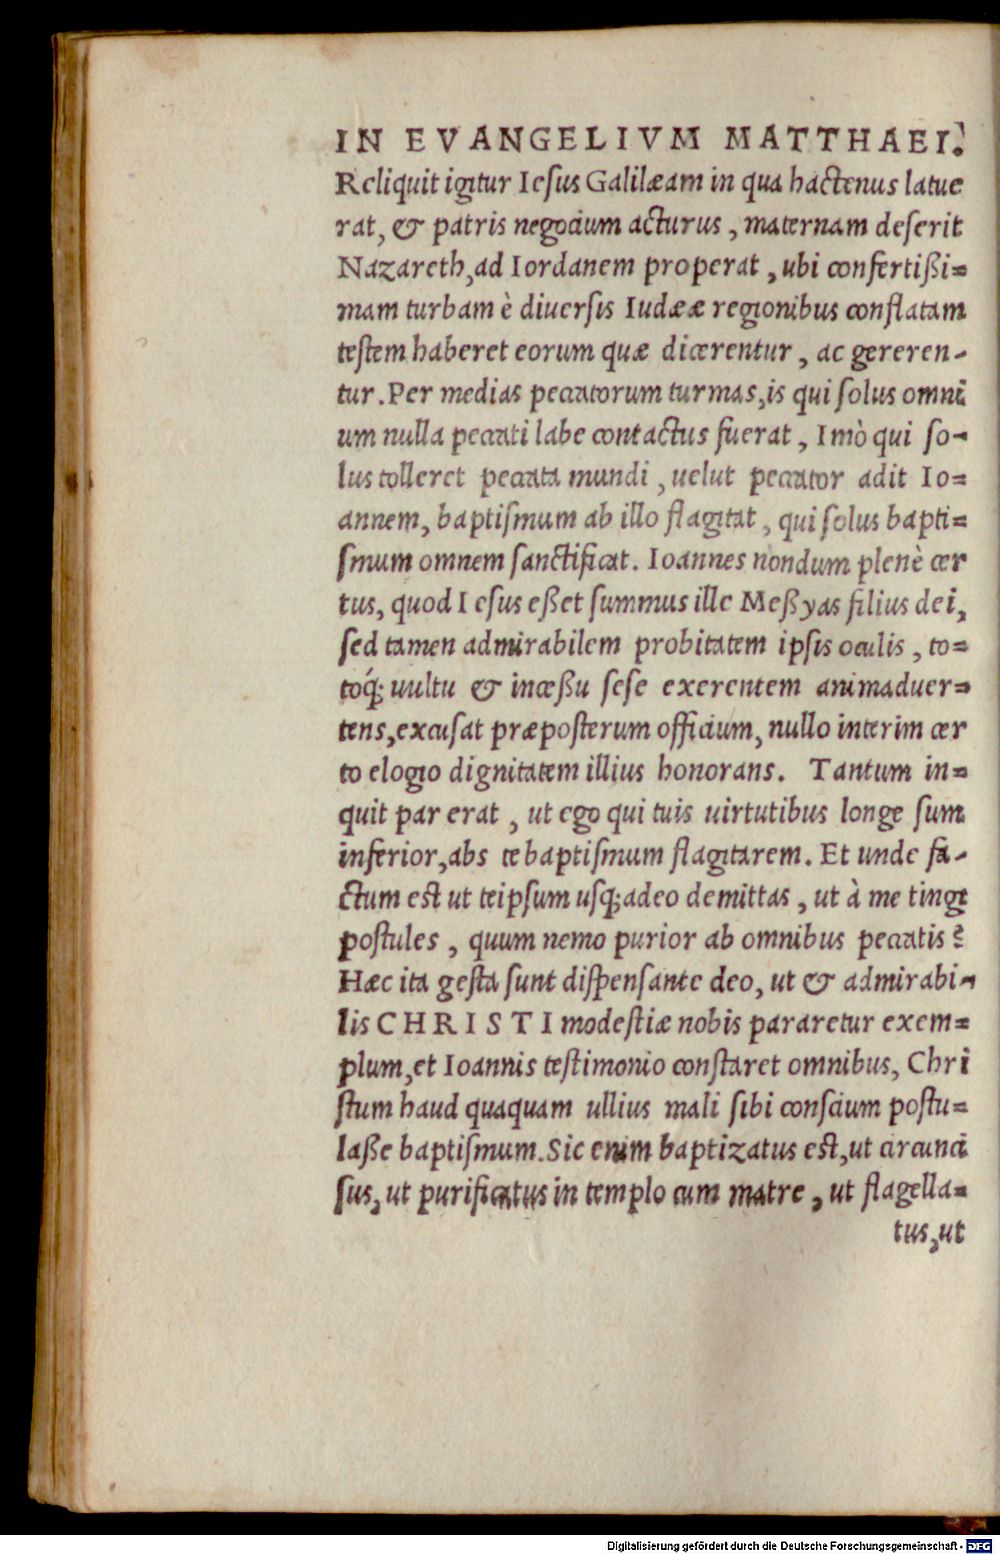 IN EVANGELIVM MATTHAEI.
Reliquit igitur Iesus Galilæam in qua hactenus latue
rat, & patris negocium acturus, maternam deserit
Nazareth, ad Iordanem properat, ubi confertißi=
mam turbam è diuersis Iudææ regionibus conflatam
testem haberet eorum quæ dicerentur, ac gereren-
tur. Per medias peccatorum turmas, is qui solus omni
um nulla peccati labe contactus fuerat, Imò qui so-
lus tolleret peccata mundi, uelut peccator adit Io=
annem, baptismum ab illo flagitat, qui solus bapti=
smum omnem sanctificat. Ioannes nondum plenè cer
tus, quod Iesus eßet summus ille Meßyas filius dei,
sed tamen admirabilem probitatem ipsis oculis, to=
toq́; uultu & inceßu sese exerentem animaduer=
tens, excusat præposterum officium, nullo interim cer
to elogio dignitatem illius honorans. Tantum in=
quit par erat, ut ego qui tuis uirtutibus longe sum
inferior, abs te baptismum flagitarem. Et unde fa-
ctum est ut teipsum usq; adeo demittas, ut à me tingi
postules, quum nemo purior ab omnibus peccatis?
Hæc ita gesta sunt dispensante deo, ut & admirabi-
lis CHRISTI modestiæ nobis pararetur exem=
plum, et Ioannis testimonio constaret omnibus, Chri
stum haud quaquam ullius mali sibi conscium postu=
laße baptismum. Sic enim baptizatus est, ut circunci
sus, ut purificatus in templo cum matre, ut flagella=
tus, ut
Digitalisierung gefördert durch die Deutsche Forschungsgemeinschaft - DFG